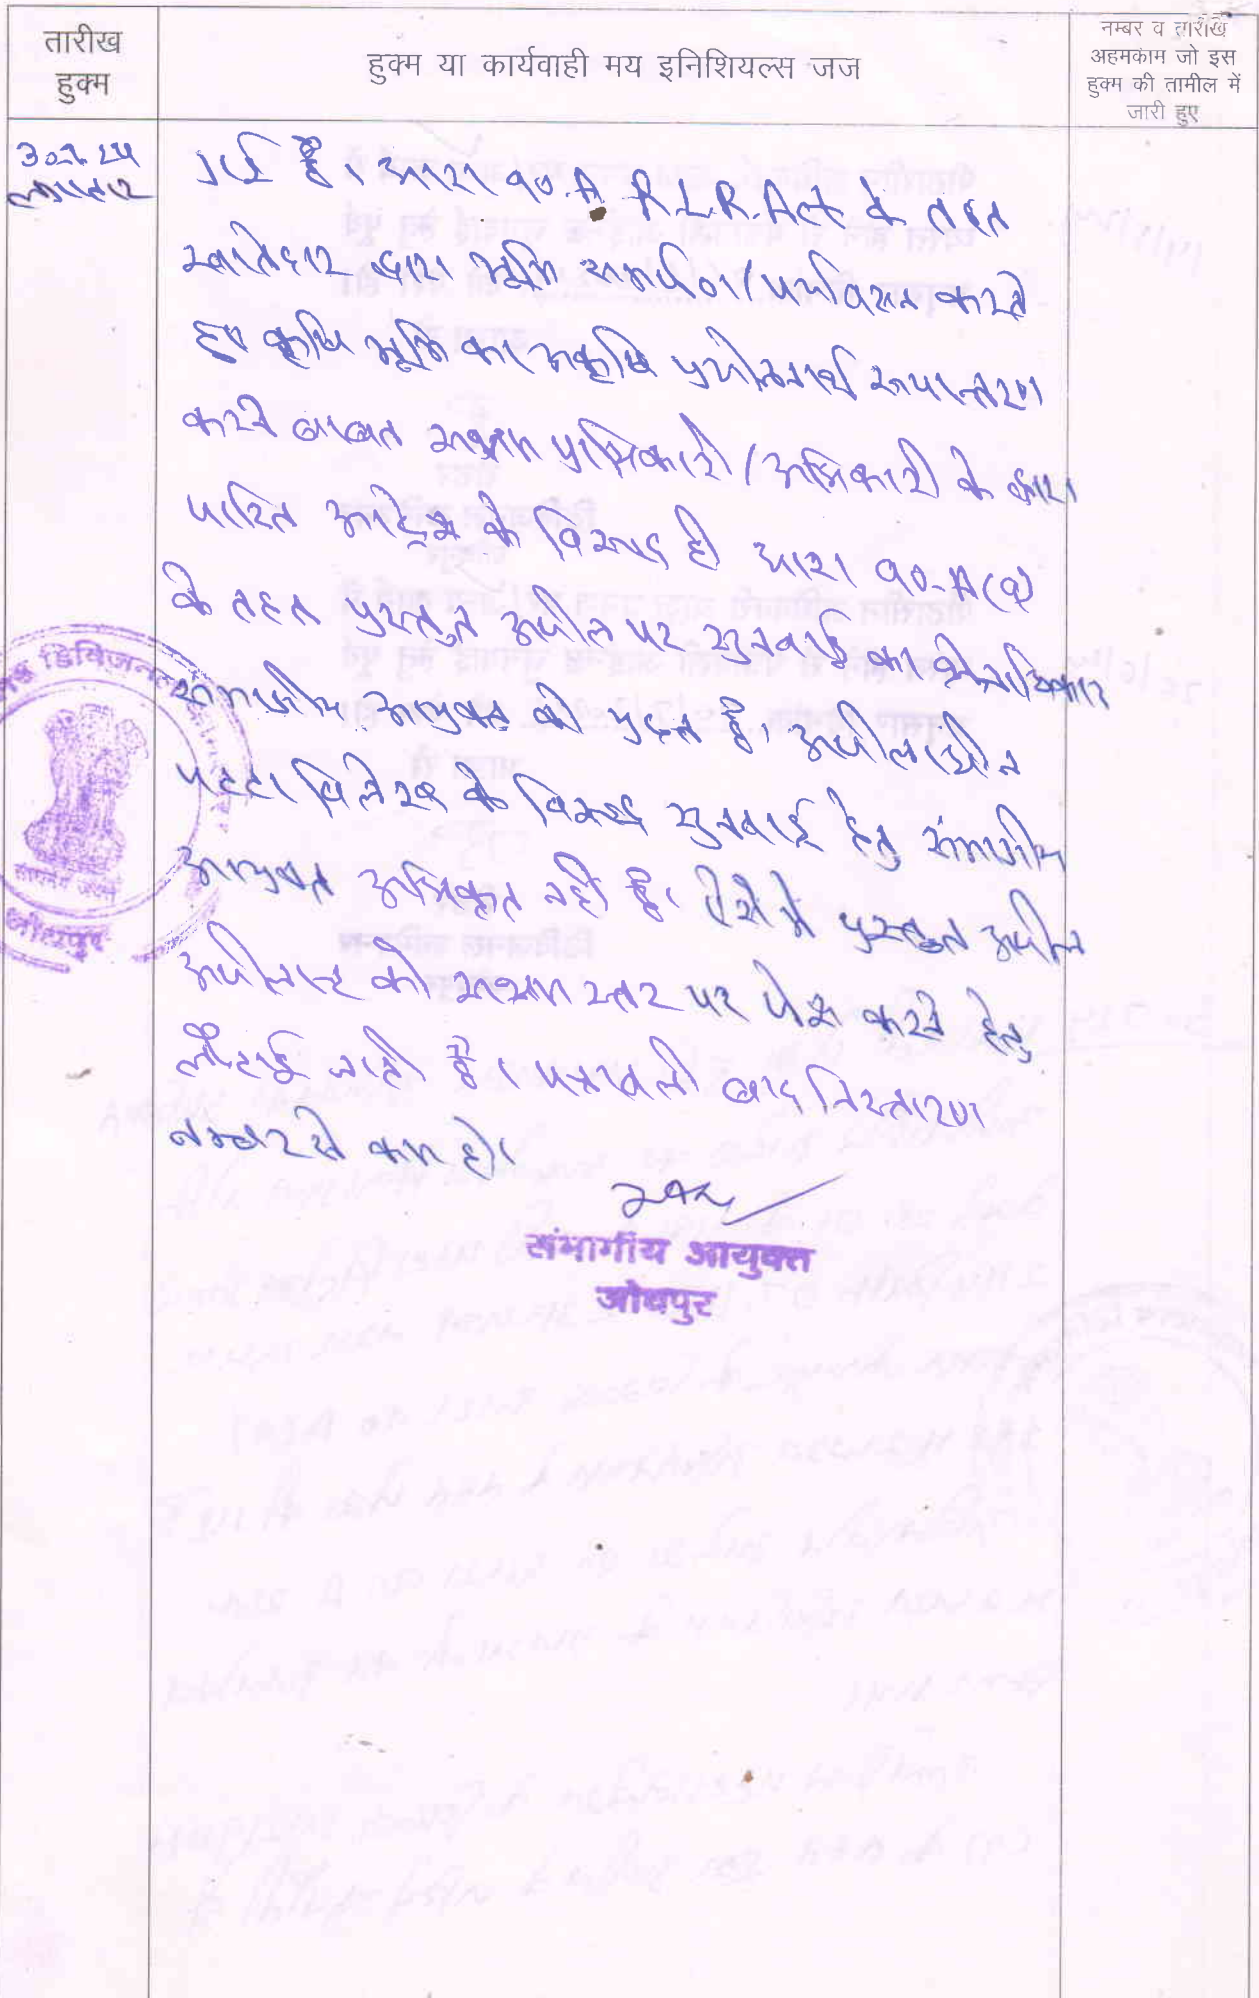 तारीख
हुक्म
हुक्म या कार्यवाही मय इनिशियल्स जज
नम्बर व तारीख
अहमकाम जो इस
हुक्म की तामील में
जारी हुए
लगातार
गई है। धारा 90-A R.L.R.Act के तहत
खातेदार द्वारा भूमि समर्पण/पर्यावसन करते
हुए कृषि भूमि का अकृषि प्रयोजनार्थ रूपान्तरण
करने बाबत सक्षम प्राधिकारी/अधिकारी के द्वारा
पारित आदेश के विरूद्ध ही धारा 90-A
के तहत प्रस्तुत अपील पर सुनवाई का क्षेत्राधिकार
संभागीय आयुक्त को प्रदत्त है। अपीलाधीन
पट्टा विलेख के विरूद्ध सुनवाई हेतु संभागीय
आयुक्त अधिकृत नहीं है। ऐसे में प्रस्तुत अपील
अपीलान्ट को सक्षम स्तर पर पेश करने हेतु
लौटाई जाती है। पत्रावली बाद निस्तारण
नम्बर से कम हो।
संभागीय आयुक्त
जोधपुर
डिविजनल
जोधपुर